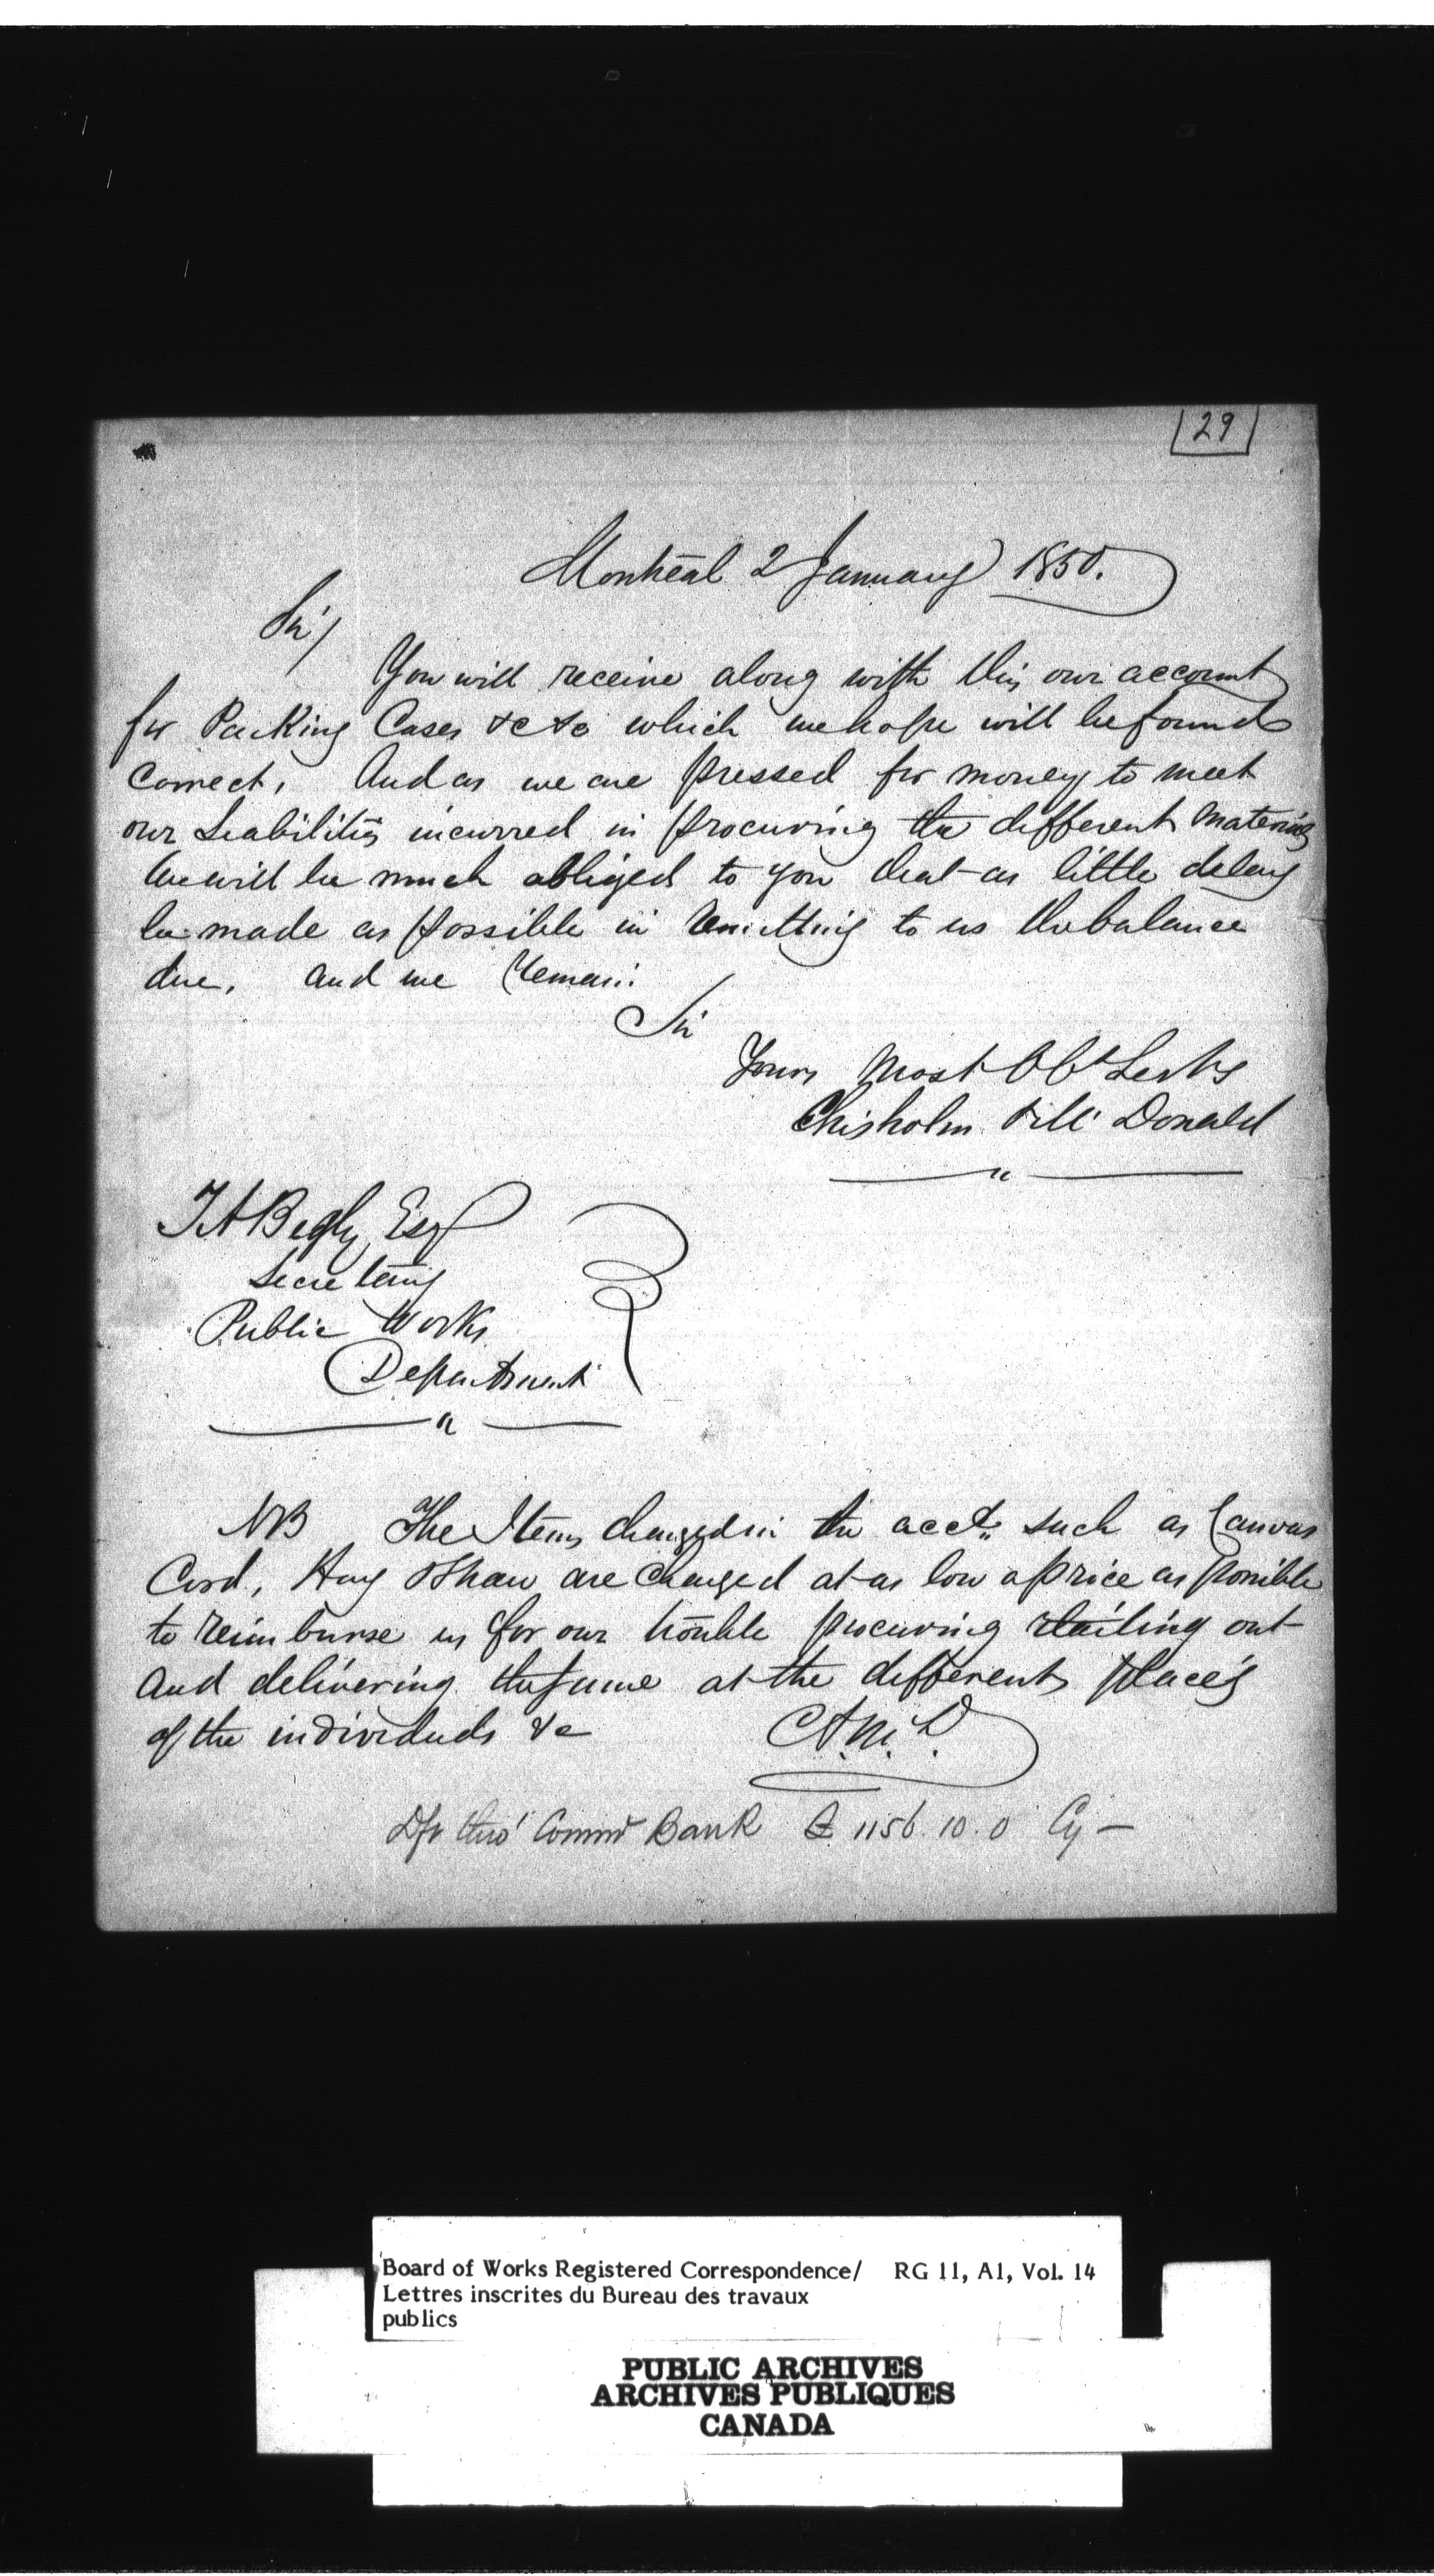 29
Montreal 2 January 1850.
Sir/
You will receive along with this our account
for Packing Cases &c &c which we hope will be found
Correct, And as we are pressed for money to meet
our Liabilities incurred in procuring the different materials
We will be much obliged to you that as little delay
be made as possible in remitting to us the balance
due, and we remain
Sir
Yours Most Obt Servts
Chisholm & McDonald
T A Begly Esqr
Secretary
Public Works
Department
NB The Items charged in the acct. such as Canvas
Cord, Hay & Straw are charged at as low a price as possible
to reimburse us for our trouble procuring retailing out
and delivering the same at the different places
of the individuals &c
C & McD.
thro' Comml Bank £ 1156.10.0 Cy —
Board of Works Registered Correspondence/ RG 11, A1, Vol. 14
Lettres inscrites du Bureau des travaux
publics
PUBLIC ARCHIVES
ARCHIVES PUBLIQUES
CANADA